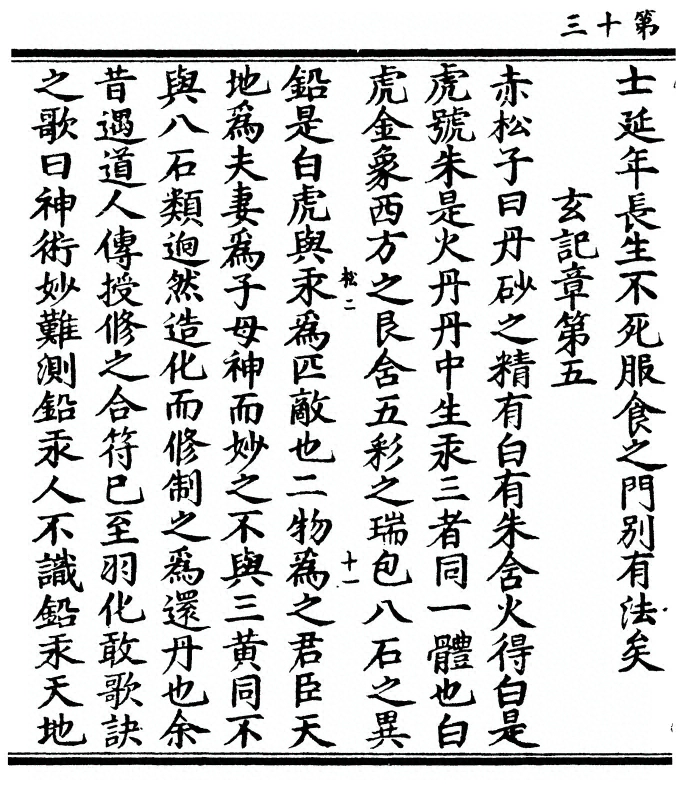 第十三
士延年長生不死服食之門別有法矣
玄記章第五
赤松子曰丹砂之精有白有朱含火得白是
虎號朱是火丹丹中生汞三者同一體也白
虎金象西方之艮含五彩之瑞包八石之異
松二
十一
鉛是白虎與汞為匹敵也二物為之君臣天
地為夫妻為子母神而妙之不與三黃同不
與八石類逈然造化而修制之為還丹也余
昔遇道人傳授修之合符已至羽化敢歌訣
之歌曰神術妙難測鉛汞人不識鉛汞天地